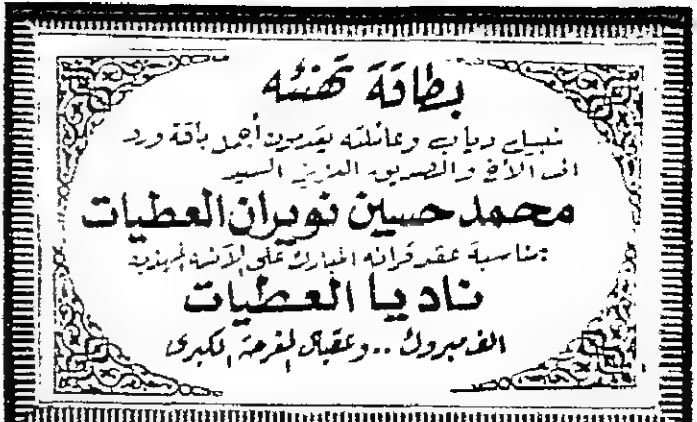 بطاقة تهنئه
نبيل دياب وعائلته يقدمون أجمل باقة ورد
الى الأخ والصديق العزيز السيد
محمد حسين نويران العطيات
بمناسبة عقد قرانه المبارك على الآنسة المهذبة
ناديا العطيات
الف مبروك .. وعقبال الفرحة الكبرى